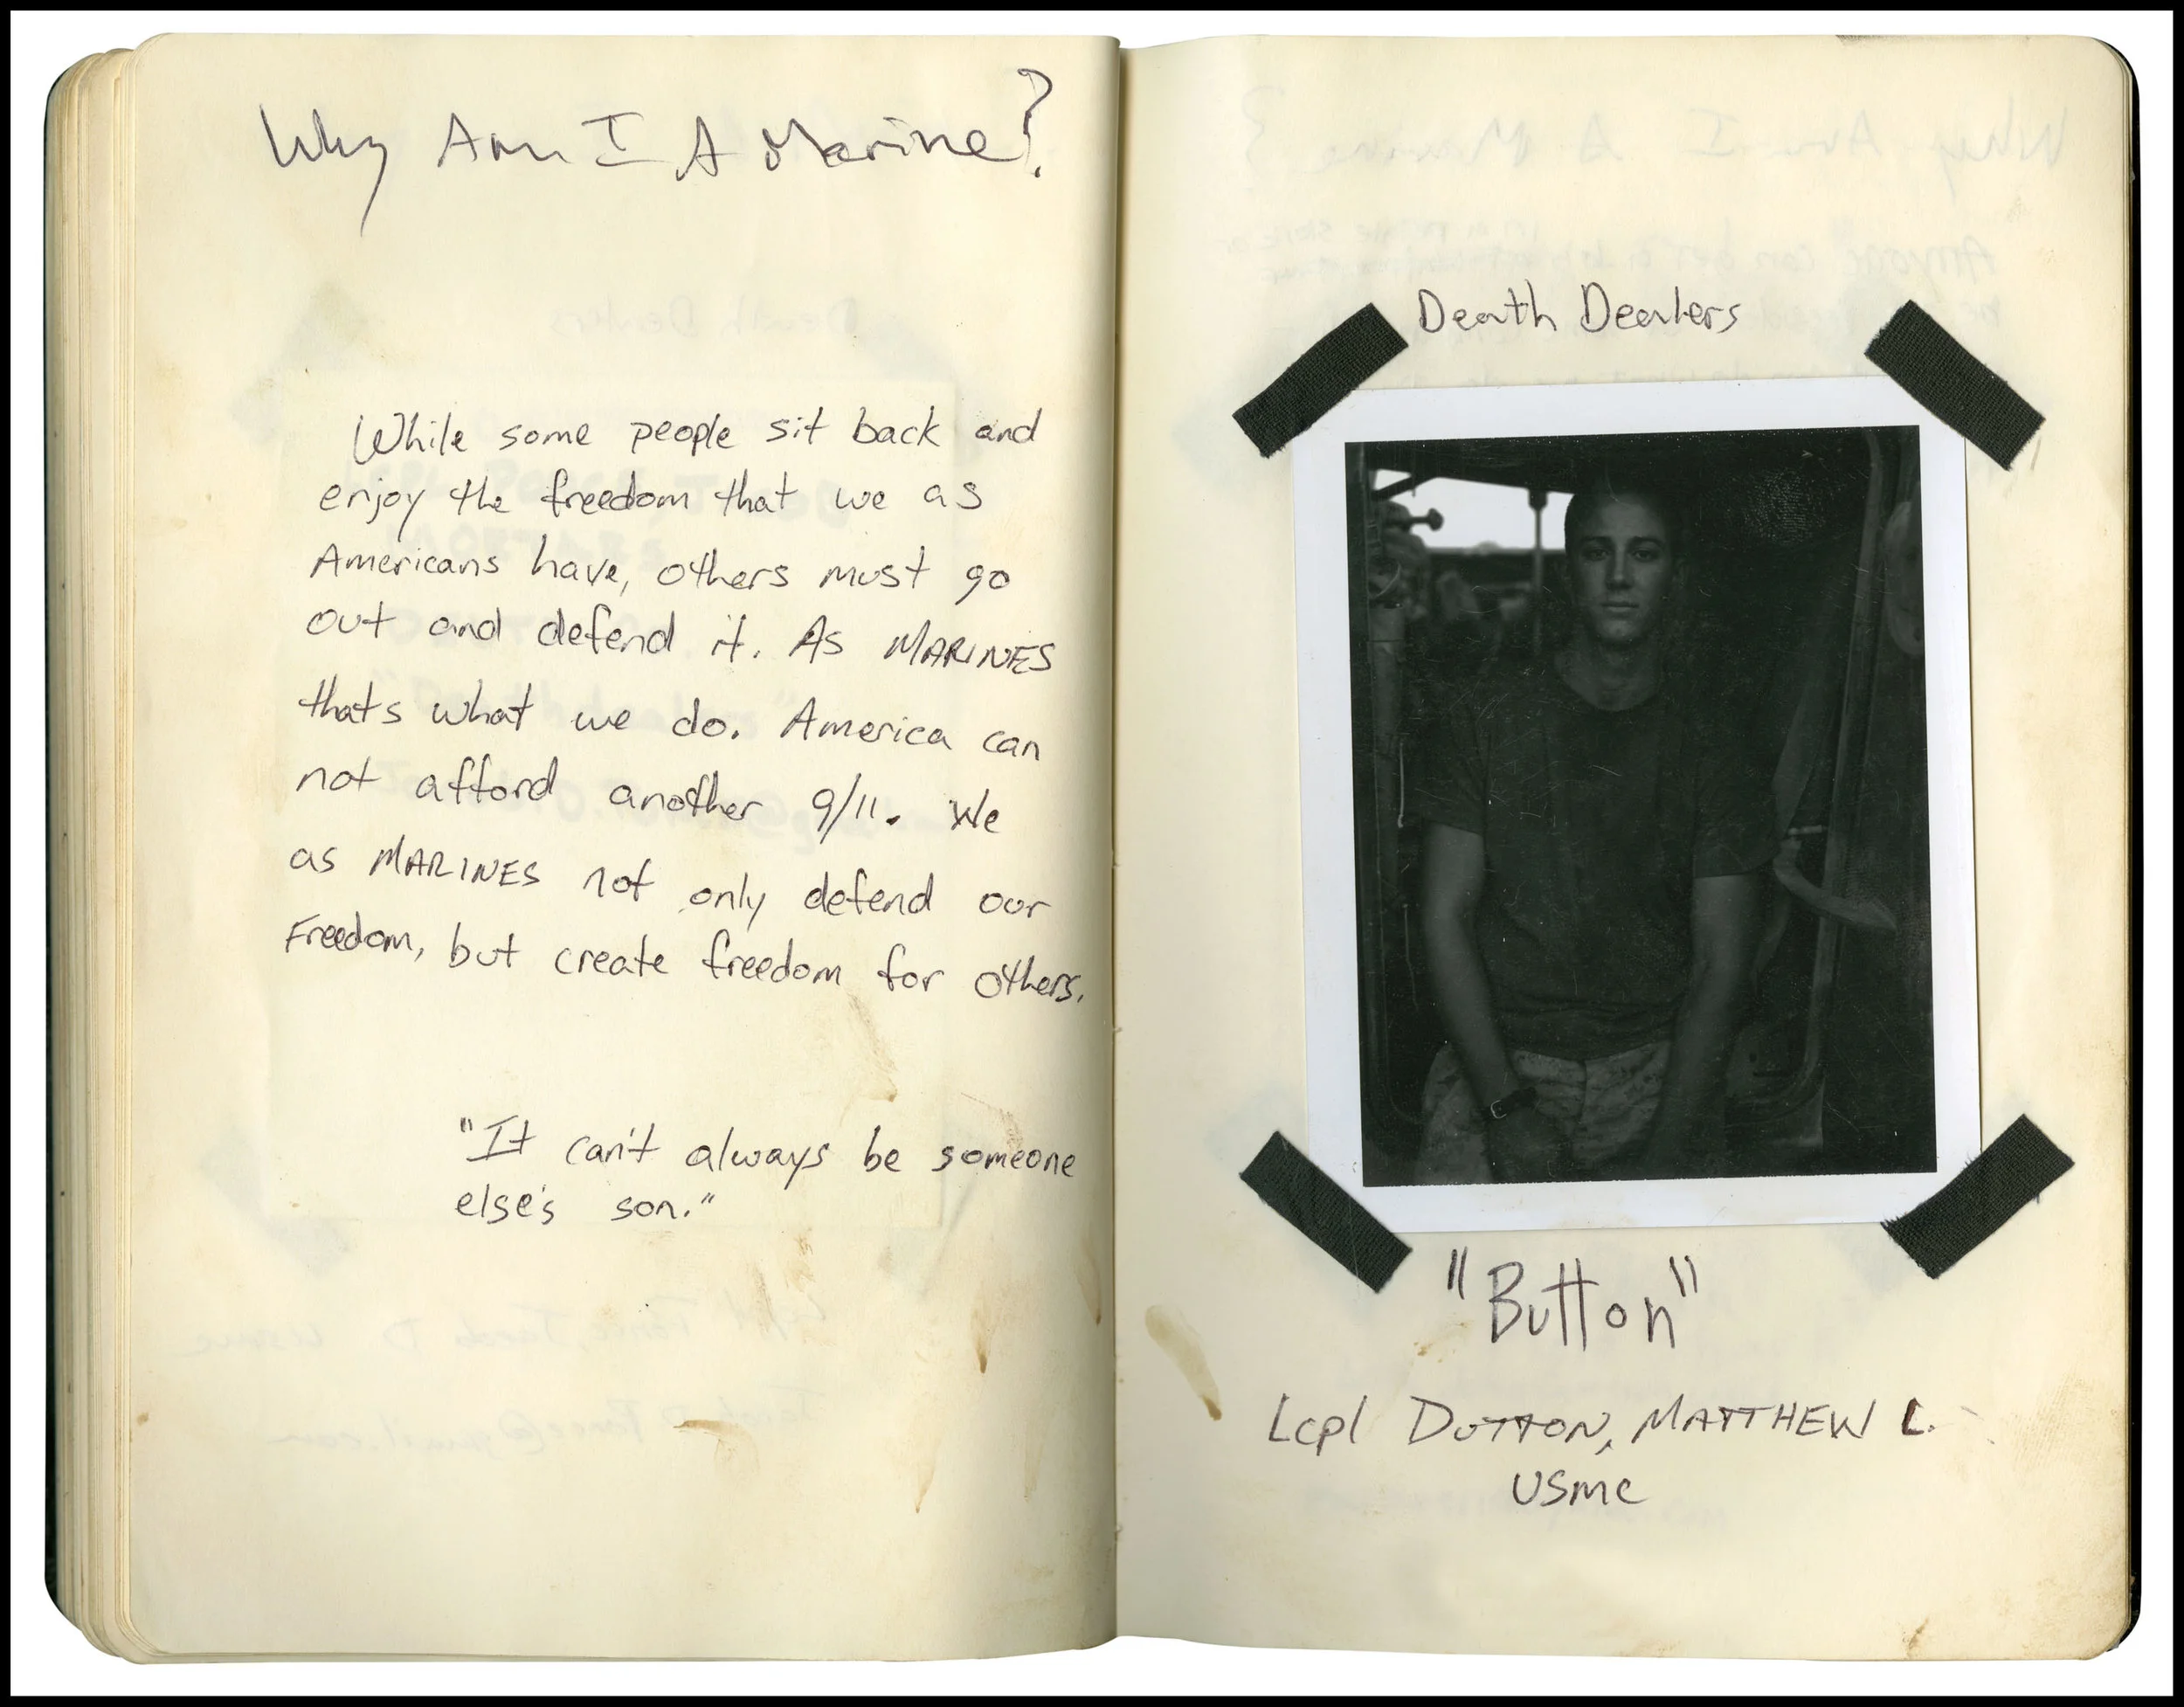 Why Am I A Marine?
While some people sit back and
enjoy the freedom that we as
Americans have, others must go
out and defend it. As MARINES
thats what we do. America can
not afford another 9/11. We
as MARINES not only defend our
Freedom, but create freedom for others.
"It can't always be someone
else's son."
Death Dealers
"Button"
Lcpl DUTTON, MATTHEW L.
USMC